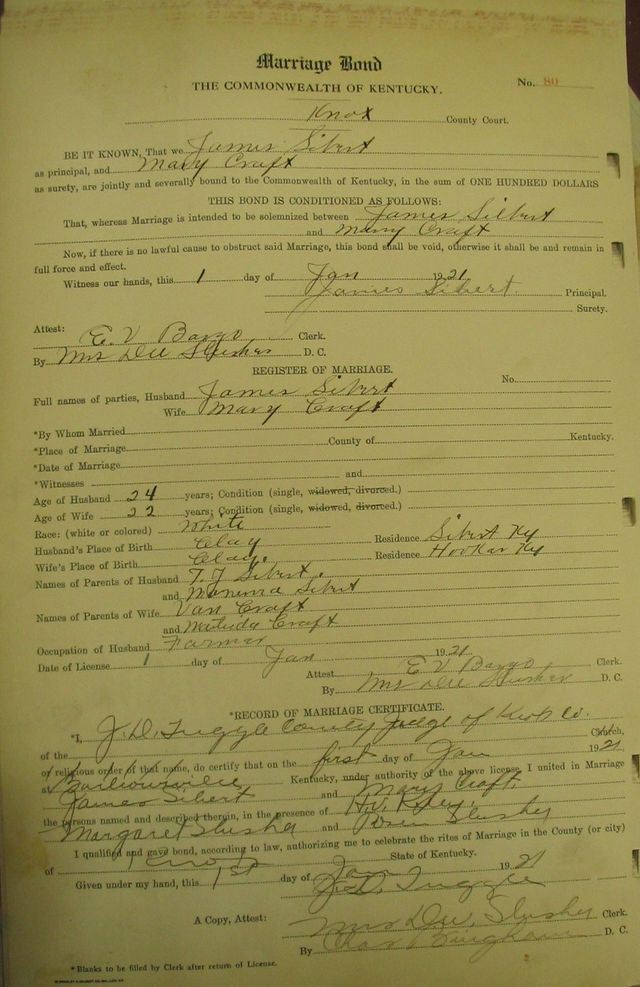 Marriage Bond
THE COMMONWEALTH OF KENTUCKY. No. 80
Knox County Court.
BE IT KNOWN, That we James Sibert
as principal, and Mary Craft
as surety, are jointly and severally bound to the Commonwealth of Kentucky, in the sum of ONE HUNDRED DOLLARS
THIS BOND IS CONDITIONED AS FOLLOWS:
That, whereas Marriage is intended to be solemnized between James Silbert
and Mary Craft
Now, if there is no lawful cause to obstruct said Marriage, this bond shall be void, otherwise it shall be and remain in
full force and effect.
Witness our hands, this 1 day of Jan 1921
James Sibert. Principal.
Surety.
Attest:
E. V Bargo Clerk.
By Mrs Dee Slusher D. C.
REGISTER OF MARRIAGE.
Full names of parties, Husband James Sibert No.
Wife Mary Craft
*By Whom Married
*Place of Marriage County of Kentucky.
*Date of Marriage
*Witnesses and
Age of Husband 24 years; Condition (single, widowed, divorced.)
Age of Wife 22 years; Condition (single, widowed, divorced.)
Race: (white or colored) White
Husband's Place of Birth Clay Residence Sibert Ky
Wife's Place of Birth Clay. Residence Hooker Ky
Names of Parents of Husband T. J Sibert.
and Sibert
Names of Parents of Wife Van Craft
and Matilda Craft
Occupation of Husband Farmer
Date of License 1 day of Jan 1921
Attest E V Bargo Clerk.
By Mrs Dee Slusher D. C.
*RECORD OF MARRIAGE CERTIFICATE.
*I, J. D. Tuggle County Judge of Knox Co.
of the Church,
or religious order of that name, do certify that on the first day of Jan 1921
at Barbourville Kentucky, under authority of the above license, I united in Marriage
James Sibert and Mary Craft,
the persons named and described therein, in the presence of
Margaret Slusher and Slusher
I qualified and gave bond, according to law, authorizing me to celebrate the rites of Marriage in the County (or city)
of Knox State of Kentucky.
Given under my hand, this 1st day of Jan 1921
J. D. Tuggle
A Copy, Attest: Mrs Dee, Slusher Clerk.
By Chas Bingham D. C.
*Blanks to be filled by Clerk after return of License.